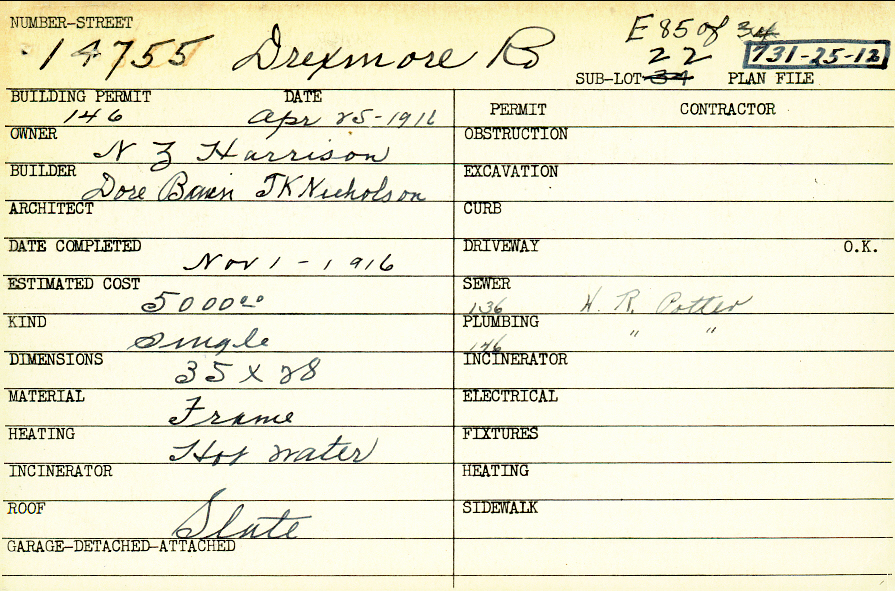 NUMBER-STREET
14755 Drexmore Rd
E 85 of 34
22
731-25-12
SUB-LOT 34 PLAN FILE
BUILDING PERMIT DATE
146 Apr 25-1916
OWNER
N Z Harrison
BUILDER
Dore JK Nicholson
ARCHITECT
DATE COMPLETED
Nov 1-1916
ESTIMATED COST
5000 00
KIND
Single
DIMENSIONS
35 x 28
MATERIAL
Frame
HEATING
Hot Water
INCINERATOR
ROOF
Slate
GARAGE-DETACHED-ATTACHED
PERMIT CONTRACTOR
OBSTRUCTION
EXCAVATION
CURB
DRIVEWAY O.K.
SEWER
136 H. R. Potter
PLUMBING
146 " "
INCINERATOR
ELECTRICAL
FIXTURES
HEATING
SIDEWALK